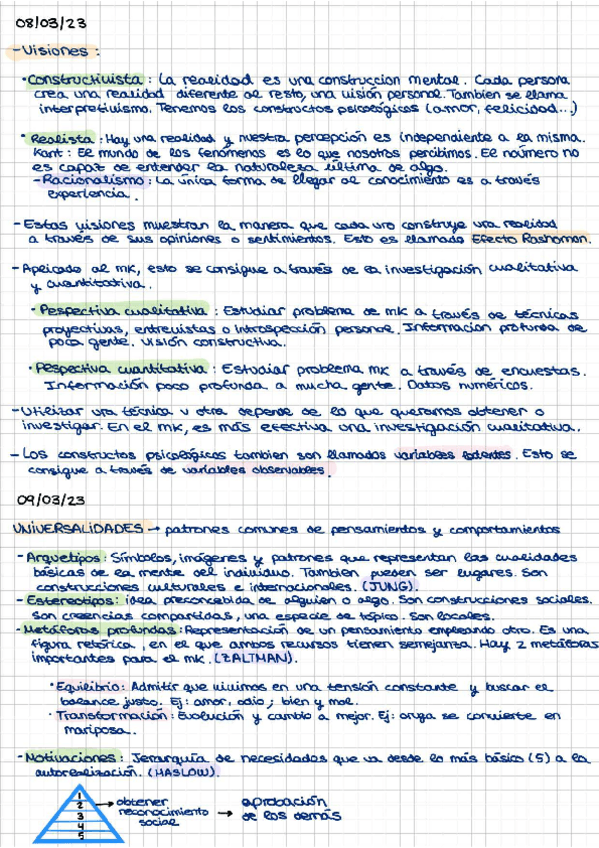 08/03/23
- Visiones :
· Constructivista : La realidad es una construccion mental. Cada persona
crea una realidad diferente al resto, una visión personal. Tambien se llama
interpretivismo. Tenemos los constructos psicológicos (amor, felicidad...)
· Realista : Hay una realidad y nuestra percepción es independiente a la misma.
Kant : El mundo de los fenómenos es lo que nosotros percibimos. El noúmero no
es capaz de entender la naturaleza última de algo.
- Racionalismo : La única forma de llegar al conocimiento es a través
experiencia .
- Estas visiones muestran la manera que cada uno construye una realidad
a través de sus opiniones o sentimientos. Esto es llamado Efecto Rashomon.
- Aplicado al mk, esto se consigue a través de la investigación cualitativa
y cuantitativa.
· Pespectiva cualitativa : Estudiar problema de mk a través de técnicas
proyectivas, entrevistas o introspección personal. Informacion profunda de
poca gente. visión constructiva.
· Pespectiva cuantitativa : Estudiar problema mk a través de encuestas.
Información poco profunda a mucha gente. Datos numéricos.
- Utilizar una técnica u otra depende de lo que queramos obtener o
investigar. En el mk, es más efectiva una investigación cualitativa.
- Los constructos psicológicos tambien son llamados variables latentes. Esto se
consigue a través de variables observables .
09/03/23
UNIVERSALIDADES → patrones comunes de pensamientos y comportamientos
- Arquetipos : Símbolos, imágenes y patrones que representan las cualidades
básicas de la mente del individuo. Tambien pueden ser lugares. Son
construcciones culturales e internacionales. (JUNG).
- Estereotipos : idea preconcebida de alguien o algo. Son construcciones sociales.
Son creencias compartidas, una especie de tópico. Son locales.
- Metáforas profundas : Representación de un pensamiento empleando otro. Es una
figura retórica , en el que ambos recursos tienen semejanza. Hay 2 metáforas
importantes para el mk. (ZALTMAN).
· Equilibrio : Admitir que vivimos en una tensión constante y buscar el
balance justo. Ej : amor, odio ; bien y mal.
· Transformación : Evolución y cambio a mejor. Ej: oruga se convierte en
mariposa.
- Motivaciones : Jerarquía de necesidades que va desde lo más básico (5) a la
autorealización. (MASLOW).
1
2 → obtener reconocimiento social → aprobación de los demás
3
4
5